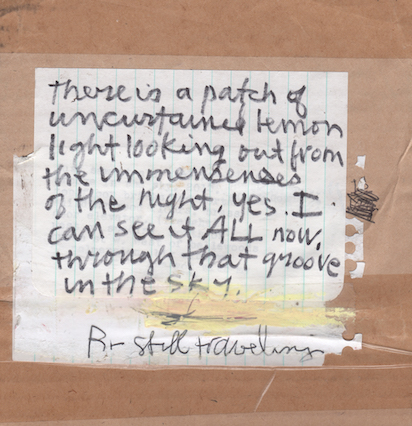 there is a patch of
uncurtained lemon
light looking out from
the immenseness
of the night, yes. I
can see it ALL now,
through that groove
in the sky.
still traveling